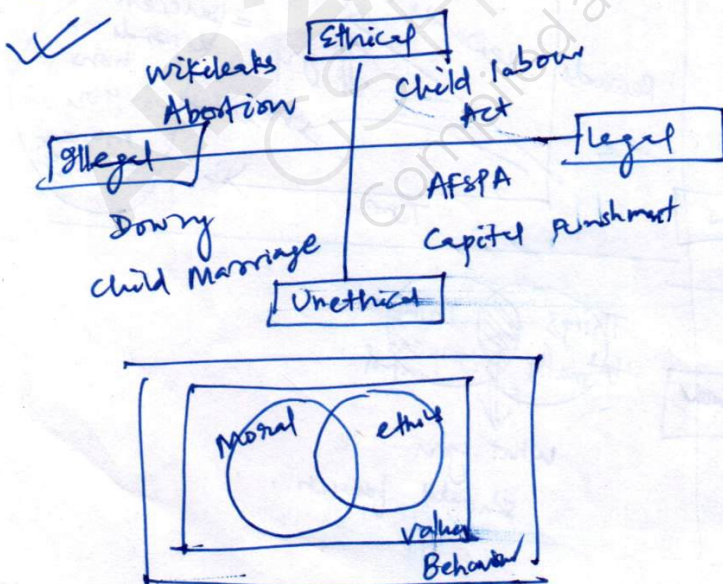 Ethical
Wikileaks
Abortion
Child labour
Act
Illegal
Legal
Dowry
Child Marriage
AFSPA
Capital Punishment
Unethical
Moral
ethics
Values
Behaviour